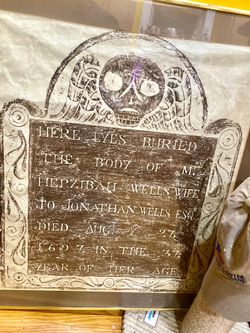 HERE LYES BURIED
THE BODY OF Mrs
HEPZIBAH WELLS WIFE
TO JONATHAN WELLS ESQ
DIED AUG Ye 27
1697 IN THE 37
YEAR OF HER AGE